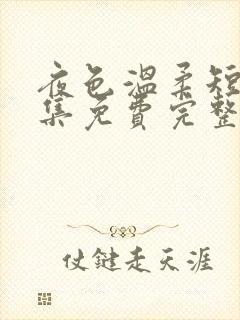 夜色温柔短
集免费完整
仗鍵走天涯